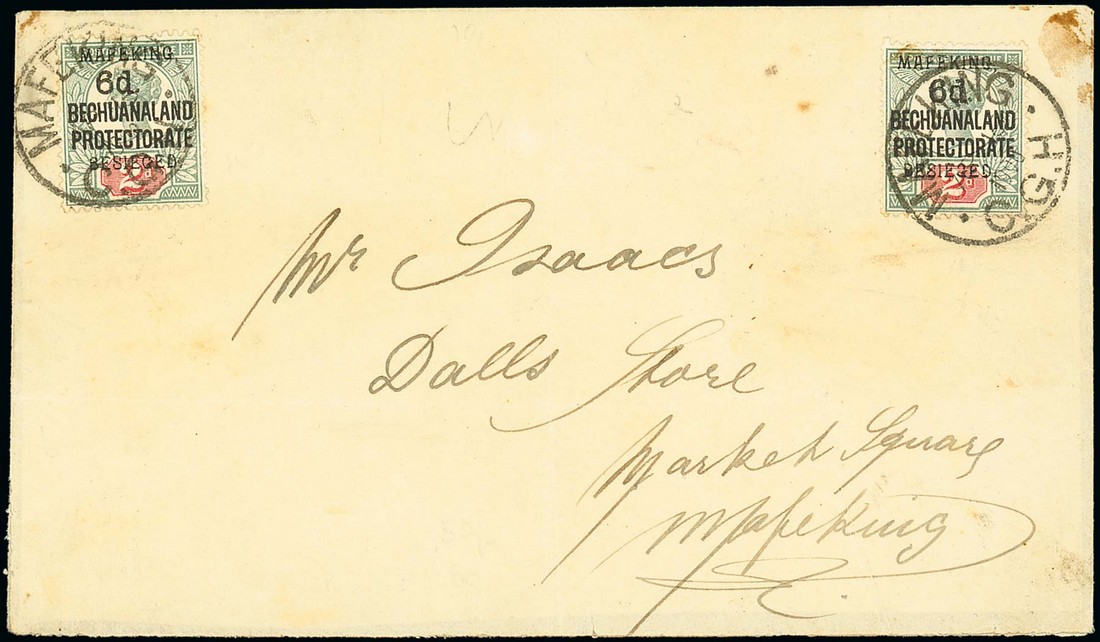 MAFEKING,
6d.
BECHUANALAND
PROTECTORATE
BESIEGED.
2d
MAFEKING
MAFEKING,
6d.
BECHUANALAND
PROTECTORATE
BESIEGED.
2d
MAFEKING
Mr Isaacs
Dalls Store
Market Square
Mafeking